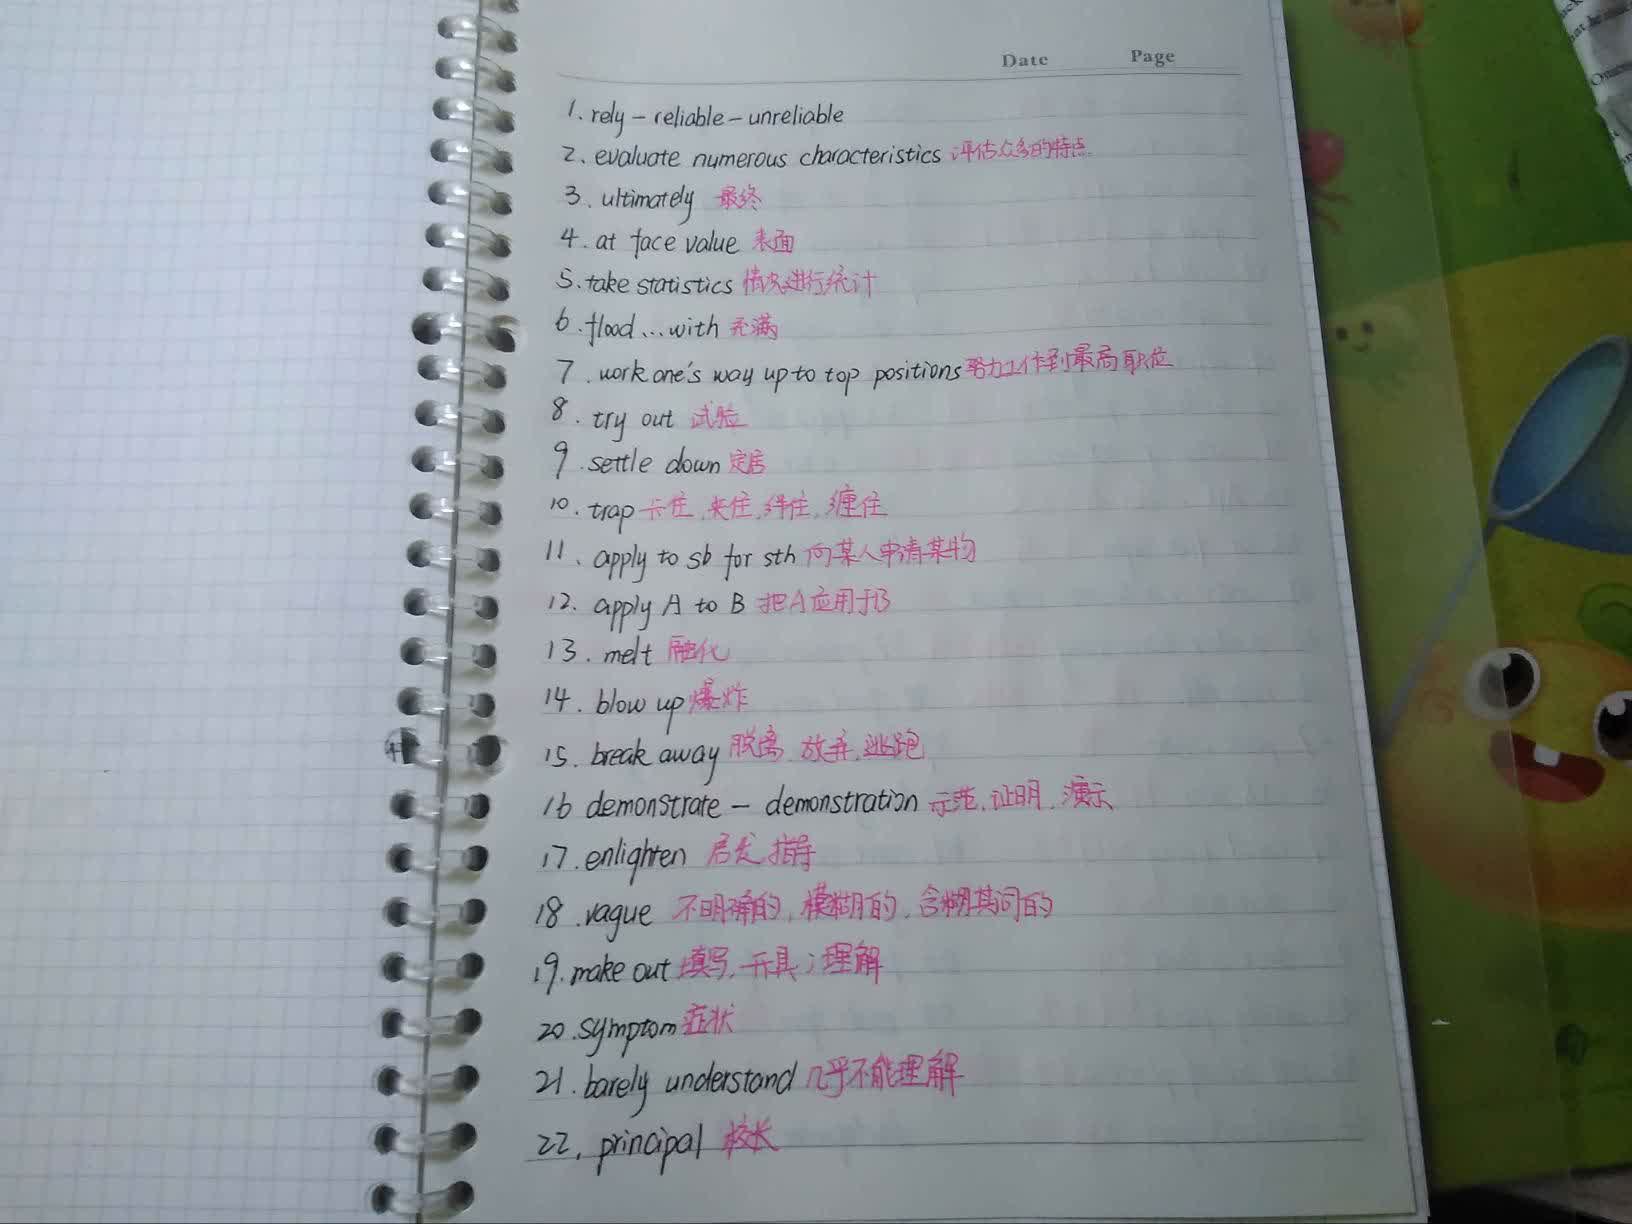 Date Page
1. rely - reliable - unreliable
2. evaluate numerous characteristics 评估众多的特点
3. ultimately 最终
4. at face value 表面
5. take statistics 情况进行统计
6. flood...with 充满
7. work one's way up to top positions 努力工作到最高职位
8. try out 试验
9. settle down 定居
10. trap 卡住、夹住、绊住、缠住
11. apply to sb for sth 向某人申请某物
12. apply A to B 把A应用于B
13. melt 融化
14. blow up 爆炸
15. break away 脱离、放弃、逃跑
16 demonstrate - demonstration 示范、证明、演示
17. enlighten 启发、指导
18. vague 不明确的、模糊的、含糊其词的
19. make out 填写、开具；理解
20. symptom 症状
21. barely understand 几乎不能理解
22. principal 校长